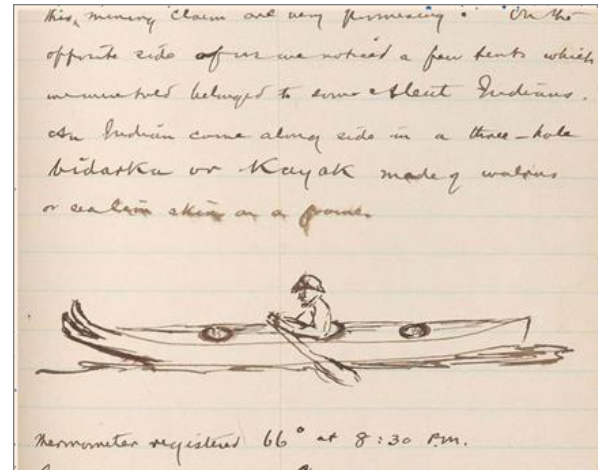 this mining claim are very promising. On the
opposite side of us we noticed a few tents which
we were told belonged to some Aleut Indians.
An Indian come along side in a three-hole
bidarka or Kayak made of walrus
or sea lion skin on a frame.
Thermometer registered 66° at 8:30 P.M.